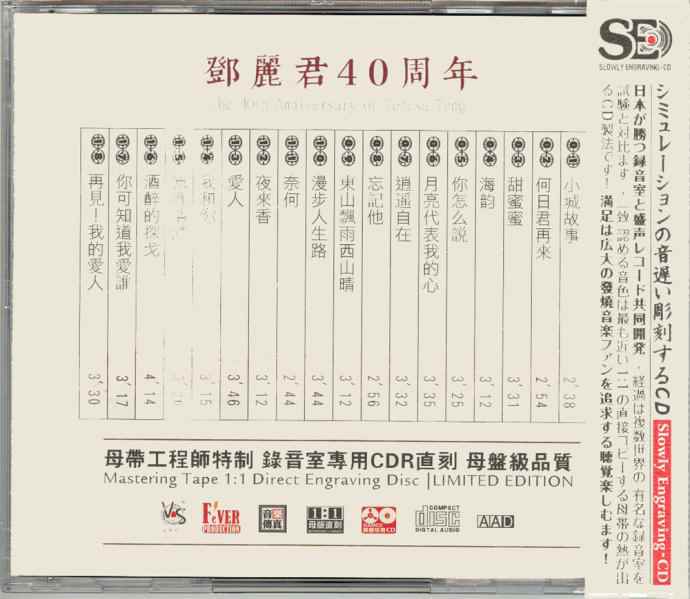 鄧麗君40周年
The 40th Anniversary of Teresa Teng
01 小城故事 2'38
02 何日君再來 2'54
03 甜蜜蜜 3'31
04 海韵 3'12
05 你怎么說 3'25
06 月亮代表我的心 3'35
07 逍遥自在 3'32
08 忘記他 2'56
09 東山飄雨西山晴 3'12
10 漫步人生路 3'44
11 奈何 2'44
12 夜來香 3'12
13 愛人 3'46
14 3'15
15
16 酒醉的探戈 4'14
17 你可知道我愛誰 3'17
18 再見！我的愛人 3'30
母帶工程師特制 錄音室專用CDR直刻 母盤級品質
Mastering Tape 1:1 Direct Engraving Disc |LIMITED EDITION
FEVER
PRODUCTION
音樂
傳真
1:1
母版直刻
COMPACT
disc
DIGITAL AUDIO
AAD
SE
SLOWLY ENGRAVING-CD
シミュレーションの音遅い彫刻するCD Slowly Engraving-CD
日本が勝つ録音室と盛声レコード共同開発，経過は複数世界の 有名な録音室を
試験と対比ます，一致 認める音色は最も近い1:1の直接コピーする母带の熱が出
るCD製法です！満足は広大の發燒音楽ファンを追求する聴覚楽しむます！